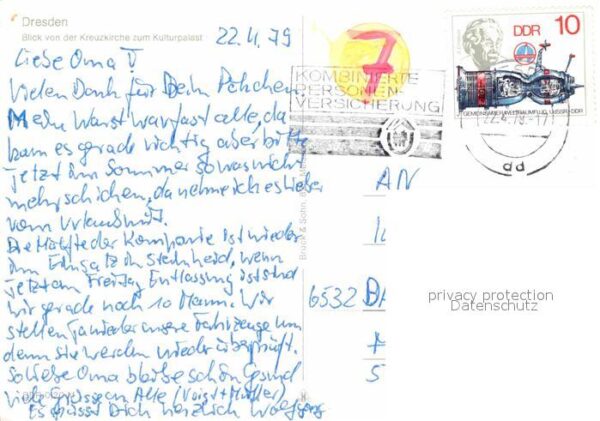 Dresden
Blick von der Kreuzkirche zum Kulturpalast
22.4.79
Liebe Oma V
Vielen Dank für Dein Päckchen
Meine Wurst war fast alle, da
kam es gerade richtig aber bitte
jetzt im Sommer sowas nicht
mehr schicken, da nehme ich es lieber
vom Urlaub mit.
Die Hälfte der Kompanie ist wieder
im Einsatz in, wenn
jetzt am Freitag Entlassung ist sind
wir gerade noch 10 Mann. Wir
stellen ja wieder unsere Fahrzeuge um
denn sie werden wieder überprüft.
So liebe Oma bleibe schön gesund
viele Grüsse an Alle (Voigt + Müller)
Es grüsst Dich herzlich Wolfgang
7
KOMBINIERTE
PERSONEN-
VERSICHERUNG
DDR 10
GEMEINSAMER WELTRAUMFLUG UdSSR-DDR
22.4.79-17
dd
Bruck & Sohn,
AN
6532
privacy protection
Datenschutz